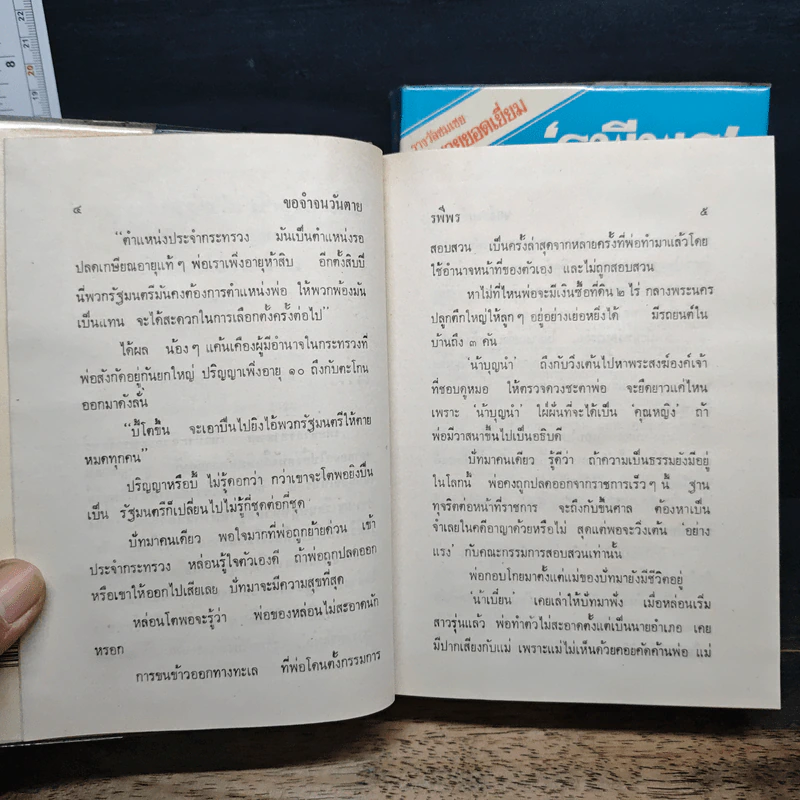 รางวัลชมเชย
ยอดเยี่ยม
'รพีพร'
๔ ขอจำจนวันตาย
“ตำแหน่งประจำกระทรวง มันเป็นตำแหน่งรอ
ปลดเกษียณอายุแท้ ๆ พ่อเราเพิ่งอายุห้าสิบ อีกตั้งสิบปี
นี่พวกรัฐมนตรีมันคงต้องการตำแหน่งพ่อ ให้พวกพ้องมัน
เป็นแทน จะได้สะดวกในการเลือกตั้งครั้งต่อไป”
ได้ผล น้องๆ แค้นเคืองผู้มีอำนาจในกระทรวงที่
พ่อสังกัดอยู่กันยกใหญ่ ปริญญาเพิ่งอายุ ๑๐ ถึงกับตะโกน
ออกมาดังลั่น
“ปี้โตขึ้น จะเอาปืนไปยิงไอ้พวกรัฐมนตรีให้ตาย
หมดทุกคน”
ปริญญาหรือปี้ ไม่รู้ดอกว่า กว่าเขาจะโตพอยิงปืน
เป็น รัฐมนตรีก็เปลี่ยนไปไม่รู้กี่ชุดต่อกี่ชุด
ปัทมาคนเดียว พอใจมากที่พ่อถูกย้ายด่วน เข้า
ประจำกระทรวง หล่อนรู้ใจตัวเองดี ถ้าพ่อถูกปลดออก
หรือเขาให้ออกไปเสียเลย ปัทมาจะมีความสุขที่สุด
หล่อนโตพอจะรู้ว่า พ่อของหล่อนไม่สะอาดนัก
หรอก
การขนข้าวออกทางทะเล ที่พ่อโดนตั้งกรรมการ
รพีพร ๕
สอบสวน เป็นครั้งล่าสุดจากหลายครั้งที่พ่อทำมาแล้วโดย
ใช้อำนาจหน้าที่ของตัวเอง และไม่ถูกสอบสวน
หาไม่ที่ไหนพ่อจะมีเงินซื้อที่ดิน ๒ ไร่ กลางพระนคร
ปลูกตึกใหญ่ให้ลูกๆ อยู่อย่างเย่อหยิ่งได้ มีรถยนต์ใน
บ้านถึง ๓ คัน
'น้าบุญนำ' ถึงกับวิ่งเต้นไปหาพระสงฆ์องค์เจ้า
ที่ชอบดูหมอ ให้ตรวจดวงชะตาพ่อ จะยืดยาวแค่ไหน
เพราะ 'น้าบุญนำ' ใฝ่ฝันที่จะได้เป็น 'คุณหญิง' ถ้า
พ่อมีวาสนาขึ้นไปเป็นอธิบดี
ปัทมาคนเดียว รู้ดีว่า ถ้าความเป็นธรรมยังมีอยู่
ในโลกนี้ พ่อคงถูกปลดออกจากราชการเร็วๆ นี้ ฐาน
ทุจริตต่อหน้าที่ราชการ จะถึงกับขึ้นศาล ต้องหาเป็น
จำเลยในคดีอาญาด้วยหรือไม่ สุดแต่พอจะวิ่งเต้น 'อย่าง
แรง' กับคณะกรรมการสอบสวนเท่านั้น
พ่อกอบโกยมาตั้งแต่แม่ของปัทมายังมีชีวิตอยู่
'น้าเบี่ยน' เคยเล่าให้ปัทมาฟัง เมื่อหล่อนเริ่ม
สาวรุ่นแล้ว พ่อทำตัวไม่สะอาดตั้งแต่เป็นนายอำเภอ เคย
มีปากเสียงกับแม่ เพราะแม่ไม่เห็นด้วยคอยคัดค้านพ่อ แม่